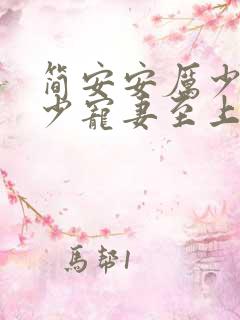 简安安厉少
少宠妻至上
马帮1